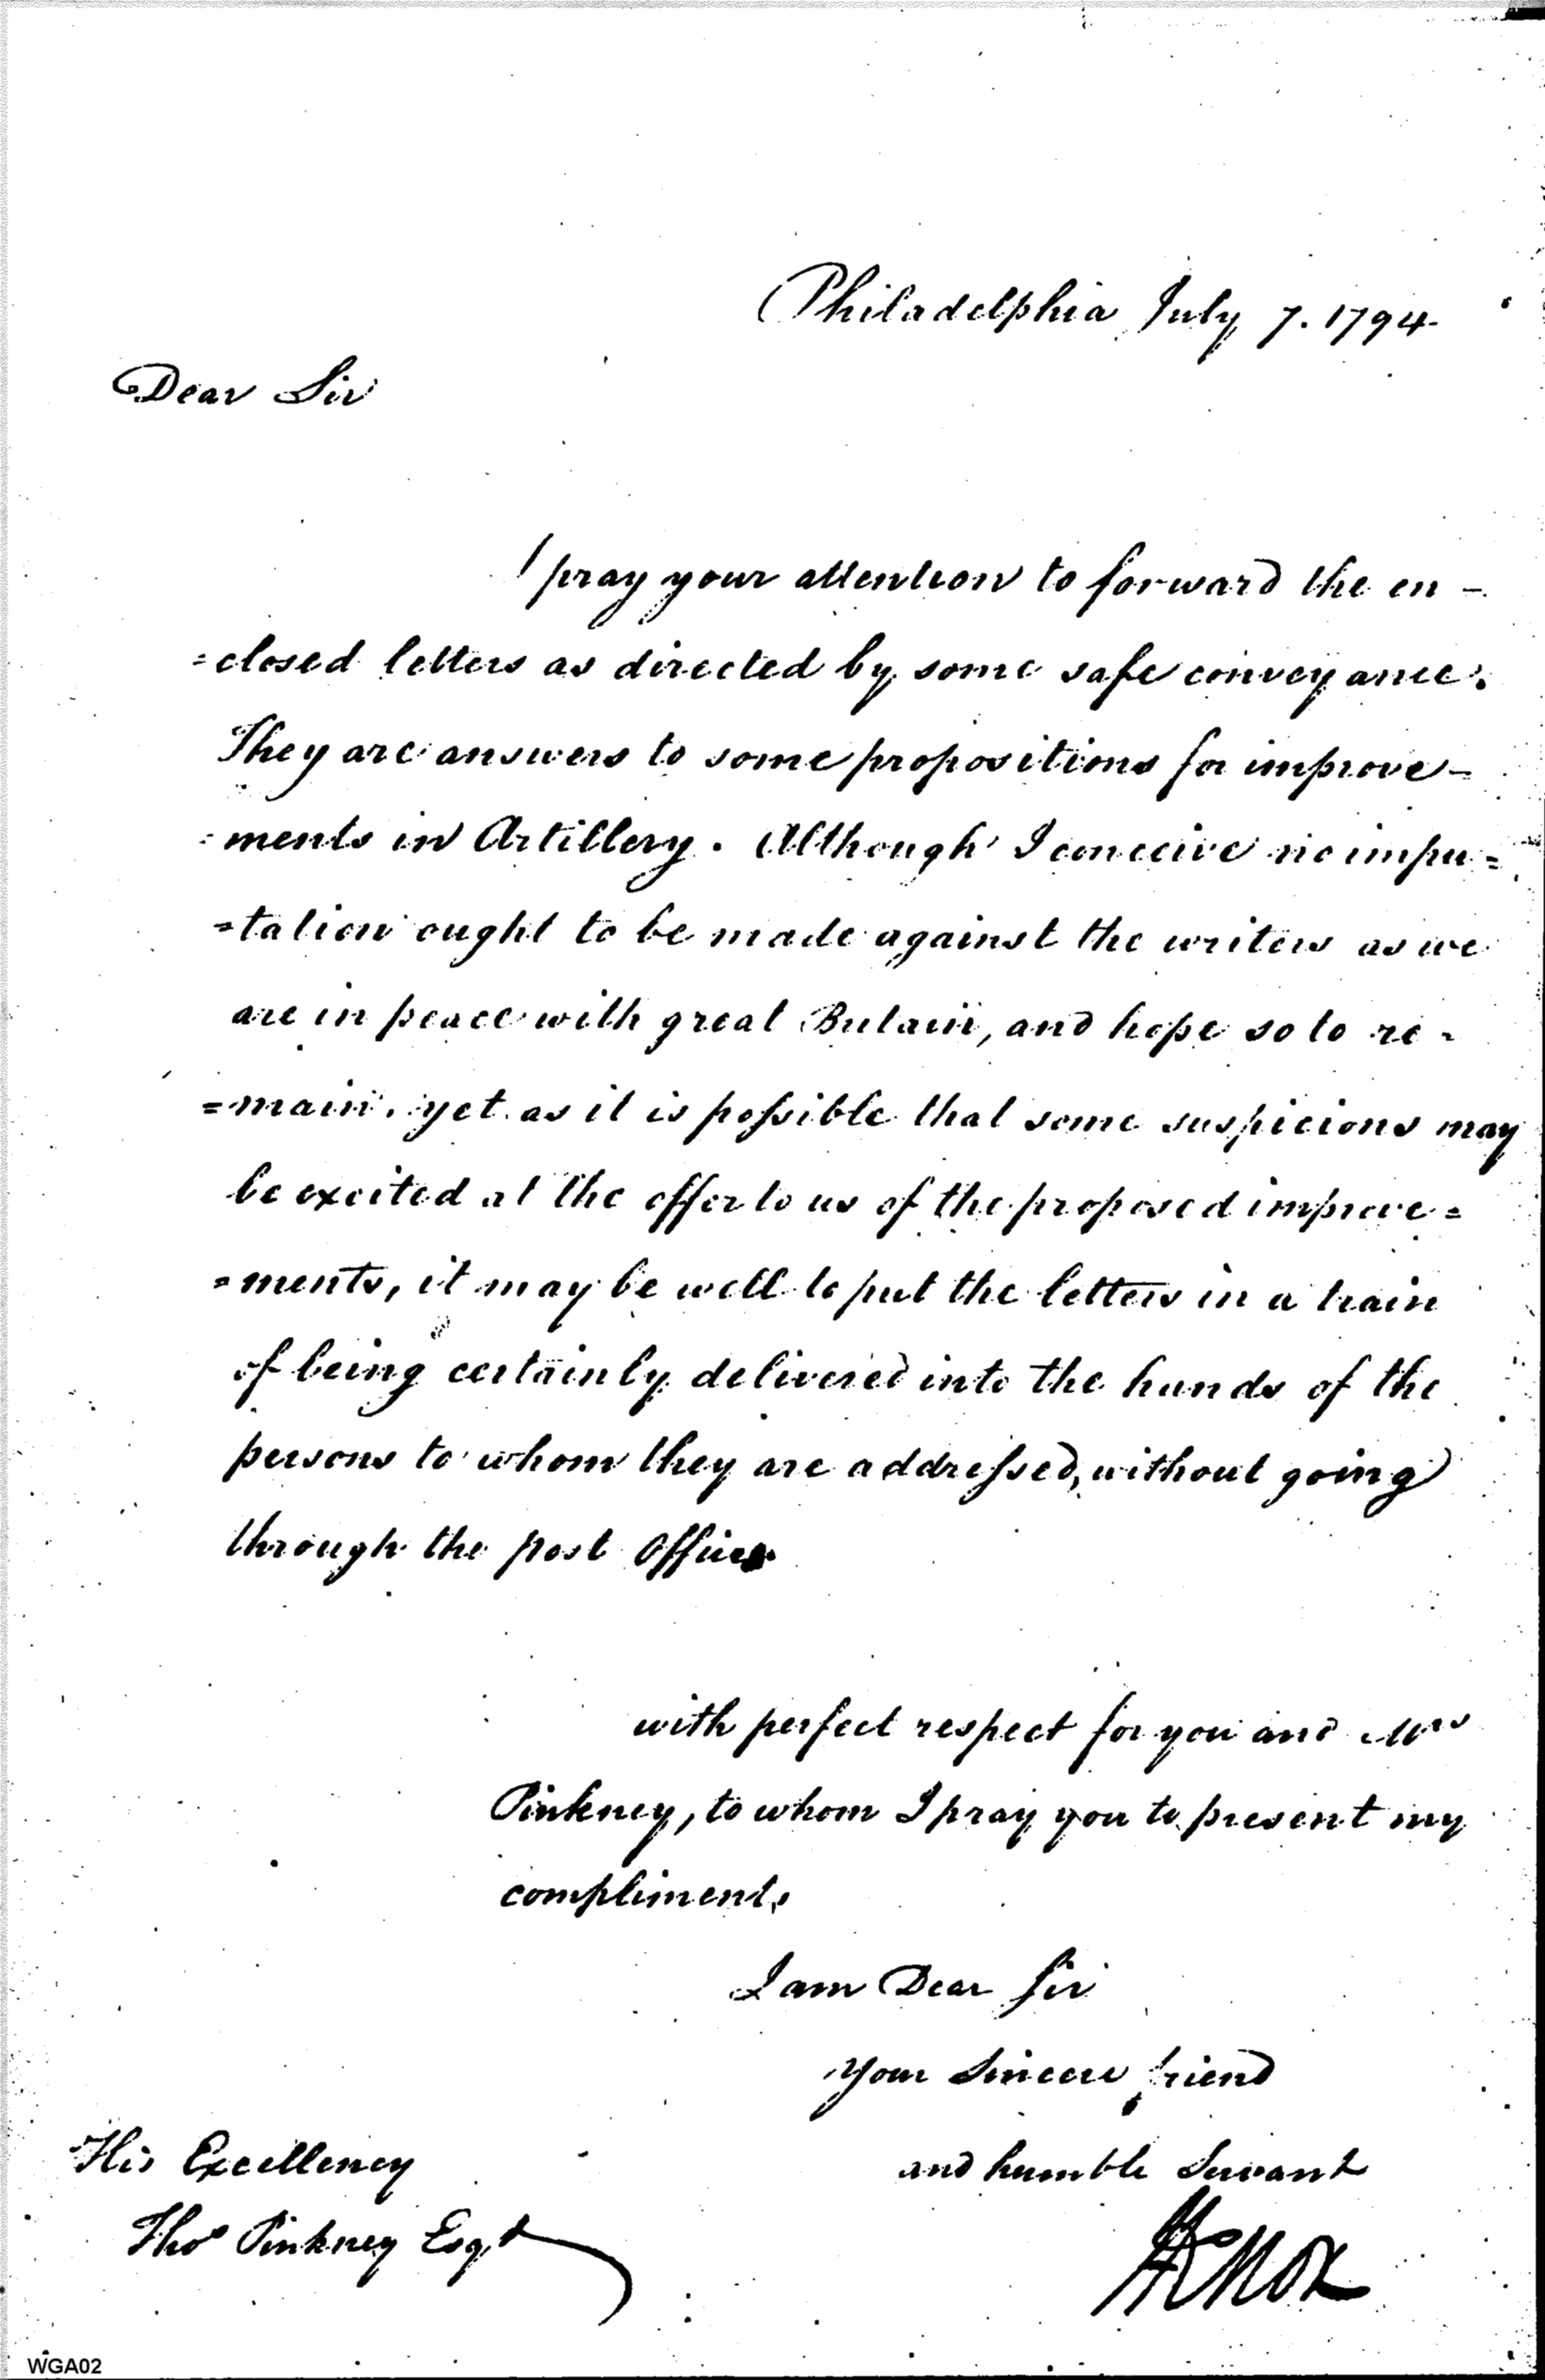 Philadelphia July 7. 1794
Dear Sir
I pray your attention to forward the en-
=closed letters as directed by some safe conveyance.
They are answers to some propositions for improve-
=ments in Artillery. Although I conceive no impu=
=tation ought to be made against the writers as we
are in peace with great Britain, and hope so to re=
=main. yet as it is possible that some suspicions may
be excited at the offer to us of the proposed improve=
=ments, it may be well to put the letters in a train
of being certainly delivered into the hands of the
persons to whom they are addressed, without going
through the post office
with perfect respect for you and Mrs
Pinkney, to whom I pray you to present my
compliments
I am Dear Sir
Your Sincere friend
and humble Servant
HKnox
His Excellency
Thos Pinkney Esqr
WGA02